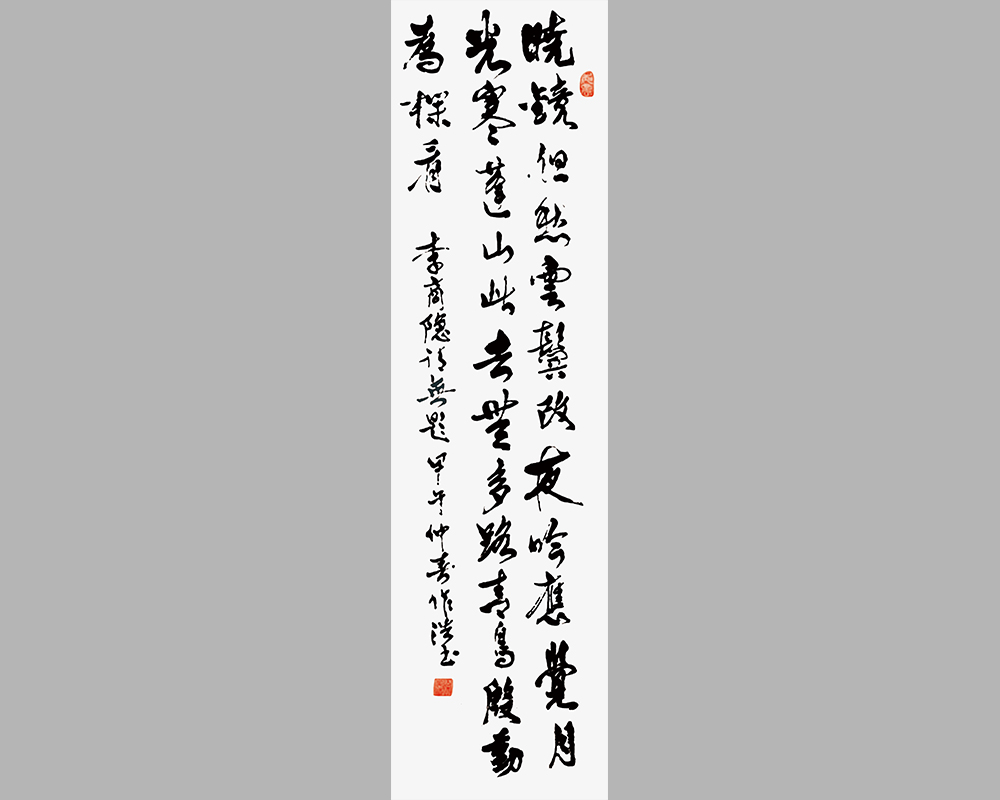 曉鏡但愁雲鬢改夜吟應覺月
光寒蓬山此去無多路青鳥殷勤
為探看 李商隱詩無題 甲午仲春作浩